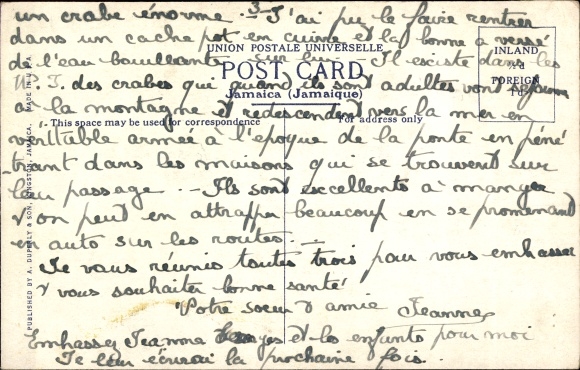 un crabe énorme. 3 - J'ai pu le faire rentrer
dans un cache pot en cuivre et la bonne a versé
de l'eau bouillante sur lui - Il existe dans les
UNION POSTALE UNIVERSELLE
POST CARD
Jamaica (Jamaïque)
INLAND
FOREIGN
des crabes qui quand ils sont adultes vont
la montagne et redescendent vers la mer en
This space may be used for correspondence
For address only
véritable armée à l'époque de la ponte en péné
trant dans les maisons qui se trouvent sur
leur passage - Ils sont excellents à manger
& on peut en attraper beaucoup en se promenant
en auto sur les routes. -
Je vous réunis toutes trois pour vous embrasser
& vous souhaiter bonne santé
Votre soeur & amie Jeanne
Embrassez Jeanne et les enfants pour moi
Je leur écrirai la prochaine fois.
PUBLISHED BY A. DUPERLY & SON, KINGSTON, JAMAICA. MADE IN U.S.A.